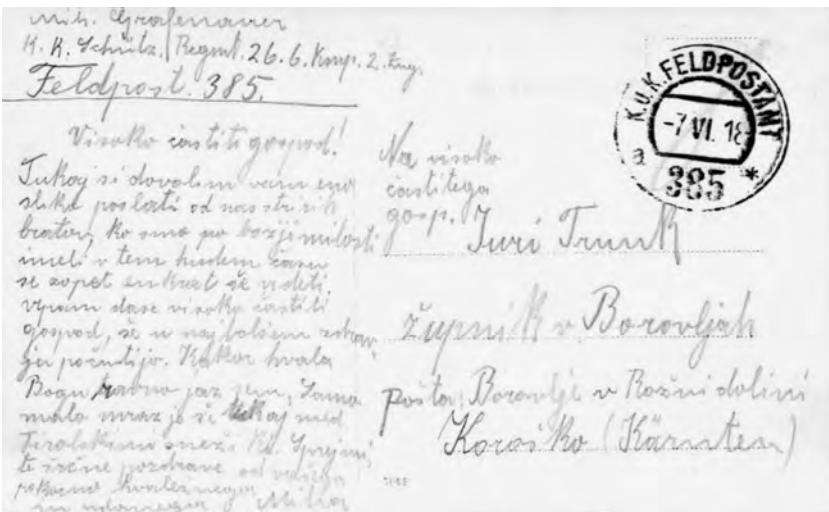 Mih. Grafenauer
K. K. Schütz. Regmt. 26. 6. Kmp. 2. Zug.
Feldpost. 385.
K.U.K. FELDPOSTAMT
-7 VI. 18
a 385 *
Visoko častiti gospod!
Tukaj si dovolim vam eno
sliko poslati od nas štirih
bratov, ko smo po božji milosti
imeli v tem hudem času
se zopet enkrat še videti.
Upam da se visoko častiti
gospod, še v najbolšem zdrav
ju počutijo. Kakor hvala
Bogu ravno jaz sem, Samo
malo mraz je še tukaj med
Tirolskimi snež.
te srčne pozdrave od vašega
pokorno hvaležnega
in udanega Miha
Na visoko
častitega
gosp. Juri Trunk
župnik v Borovljah
pošta Borovlje v Rožni dolini
Koroško (Kärnten)